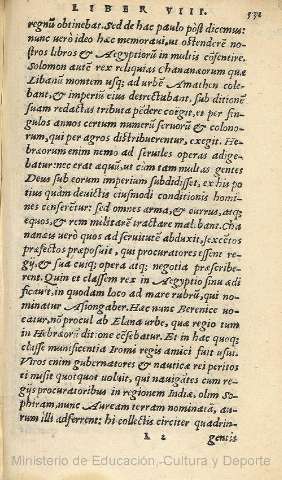 LIBER VIII. 532
regnũ obtinebat. Sed de hac paulo pòst dicemus:
nunc verò ideo hæc memoravi, ut ostenderē no-
stros libros & Ægyptiorũ in multis cõsentire.
Solomon autē rex reliquias Chananæorum quæ
Libanũ montem usq; ad urbē Amathen cole-
bant, & imperiũ eius detrectabant, sub ditionē
suam redactas tributa pēdere coegit, et per sin-
gulos annos certum numerũ servorũ & colono-
rum, qui per agros distribuerentur, exegit. He-
bræorum enim nemo ad serviles operas adige-
batur: nec erat æquũ, ut cùm tam multas gentes
Deus sub eorum imperium subdidisset, ex his po
tius quàm devictis eiusmodi conditionis homi-
nes censerētur: sed omnes arma, & currus, atq;
equos, & rem militarē tractare malebant. Cha
nanæis verò quos ad servitutē abduxit, sexcētos
præfectos præposuit, qui procuratores essent re-
gij, & sua cuiq; opera atq; negotia præscribe-
rent. Quin et classem rex in Ægyptio sinu ædi
ficavit, in quodam loco ad mare rubrũ, qui no-
minatur Asiongaber. Hæc nunc Berenice vo-
catur, nõ procul ab Elana urbe, quæ regio tum
in Hebræorũ ditione cēsebatur. Et in hac quoq;
classe munificentia Iromi regis amici fuit usus.
Viros enim gubernatores & nauticæ rei peritos
ei misit quotquot voluit, qui navigatēs cum re-
gijs procuratoribus in regionem Indiæ, olim So-
phiram, nunc Auream terram nominatā, au-
rum illi adferrent: hi collectis circiter quadrin-
gentis
Ministerio de Educación, Cultura y Deporte